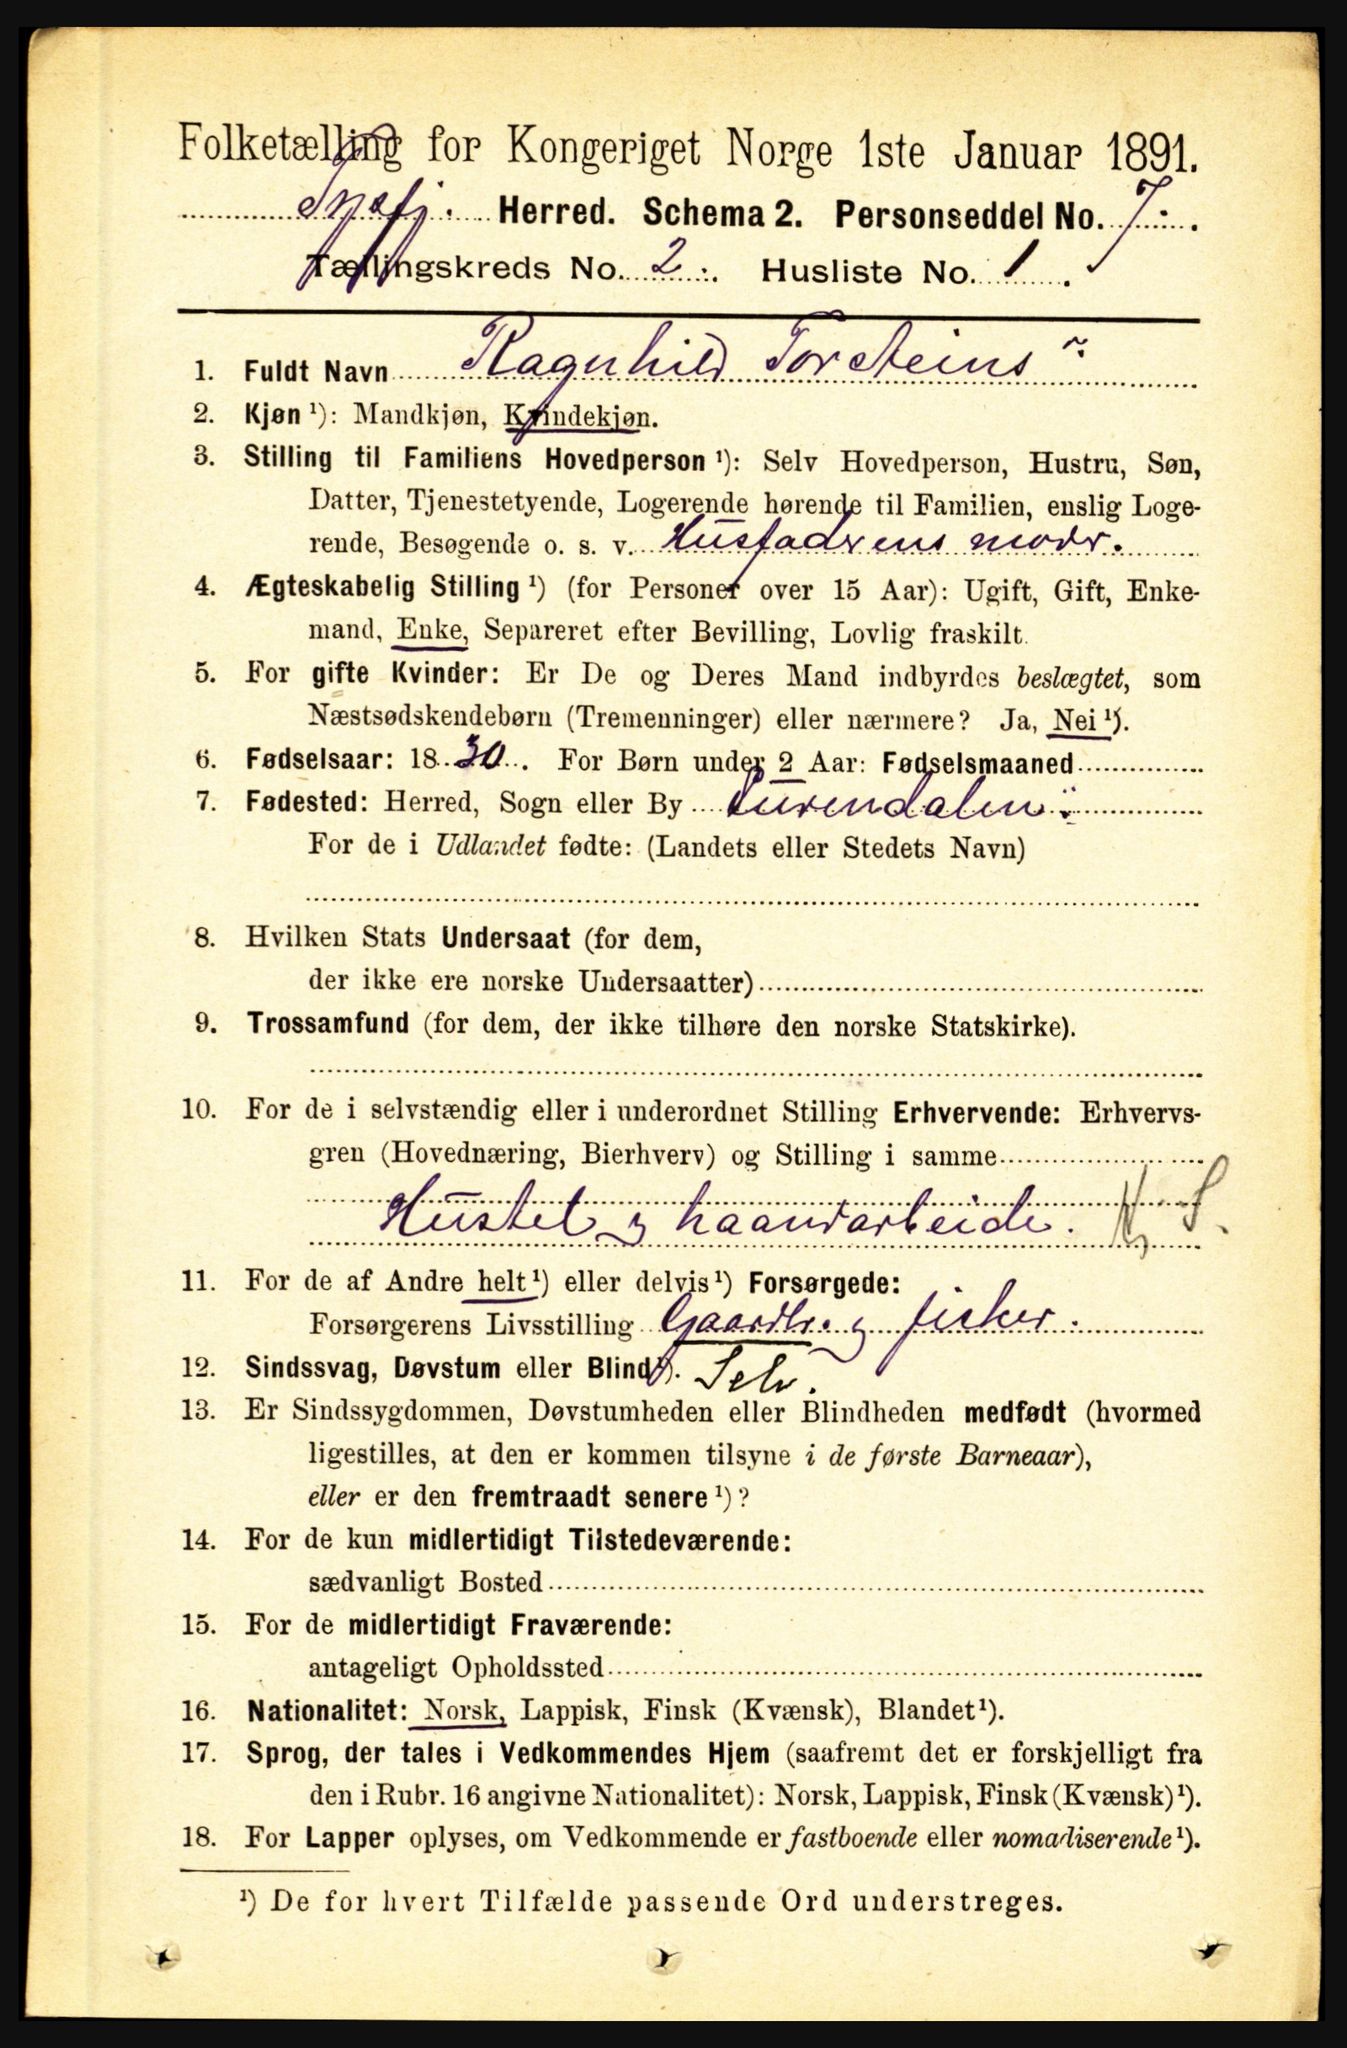 Folketælling for Kongeriget Norge 1ste Januar 1891.
Tysfj. Herred. Schema 2. Personseddel No. 7.
Tællingskreds No. 2. Husliste No. 1.
1. Fuldt Navn Ragnhild Torsteins
2. Kjøn ¹): Mandkjøn, Kvindekjøn.
3. Stilling til Familiens Hovedperson ¹): Selv Hovedperson, Hustru, Søn,
Datter, Tjenestetyende, Logerende hørende til Familien, enslig Loge-
rende, Besøgende o. s. v. Husfaderens moder.
4. Ægteskabelig Stilling ¹) (for Personer over 15 Aar): Ugift, Gift, Enke-
mand, Enke, Separeret efter Bevilling, Lovlig fraskilt.
5. For gifte Kvinder: Er De og Deres Mand indbyrdes beslægtet, som
Næstsødskendebørn (Tremenninger) eller nærmere? Ja, Nei ¹).
6. Fødselsaar: 1830. For Børn under 2 Aar: Fødselsmaaned
7. Fødested: Herred, Sogn eller By Surendalen.
For de i Udlandet fødte: (Landets eller Stedets Navn)
8. Hvilken Stats Undersaat (for dem,
der ikke ere norske Undersaatter)
9. Trossamfund (for dem, der ikke tilhøre den norske Statskirke).
10. For de i selvstændig eller i underordnet Stilling Erhvervende: Erhvervs-
gren (Hovednæring, Bierhverv) og Stilling i samme
Hustel og haandarbeide.
11. For de af Andre helt ¹) eller delvis ¹) Forsørgede:
Forsørgerens Livsstilling Gaardbr. og fisker.
12. Sindssvag, Døvstum eller Blind ¹). Selv.
13. Er Sindssygdommen, Døvstumheden eller Blindheden medfødt (hvormed
ligestilles, at den er kommen tilsyne i de første Barneaar),
eller er den fremtraadt senere ¹)?
14. For de kun midlertidigt Tilstedeværende:
sædvanligt Bosted
15. For de midlertidigt Fraværende:
antageligt Opholdssted
16. Nationalitet: Norsk, Lappisk, Finsk (Kvænsk), Blandet ¹).
17. Sprog, der tales i Vedkommendes Hjem (saafremt det er forskjelligt fra
den i Rubr. 16 angivne Nationalitet): Norsk, Lappisk, Finsk (Kvænsk) ¹).
18. For Lapper oplyses, om Vedkommende er fastboende eller nomadiserende ¹).
¹) De for hvert Tilfælde passende Ord understreges.